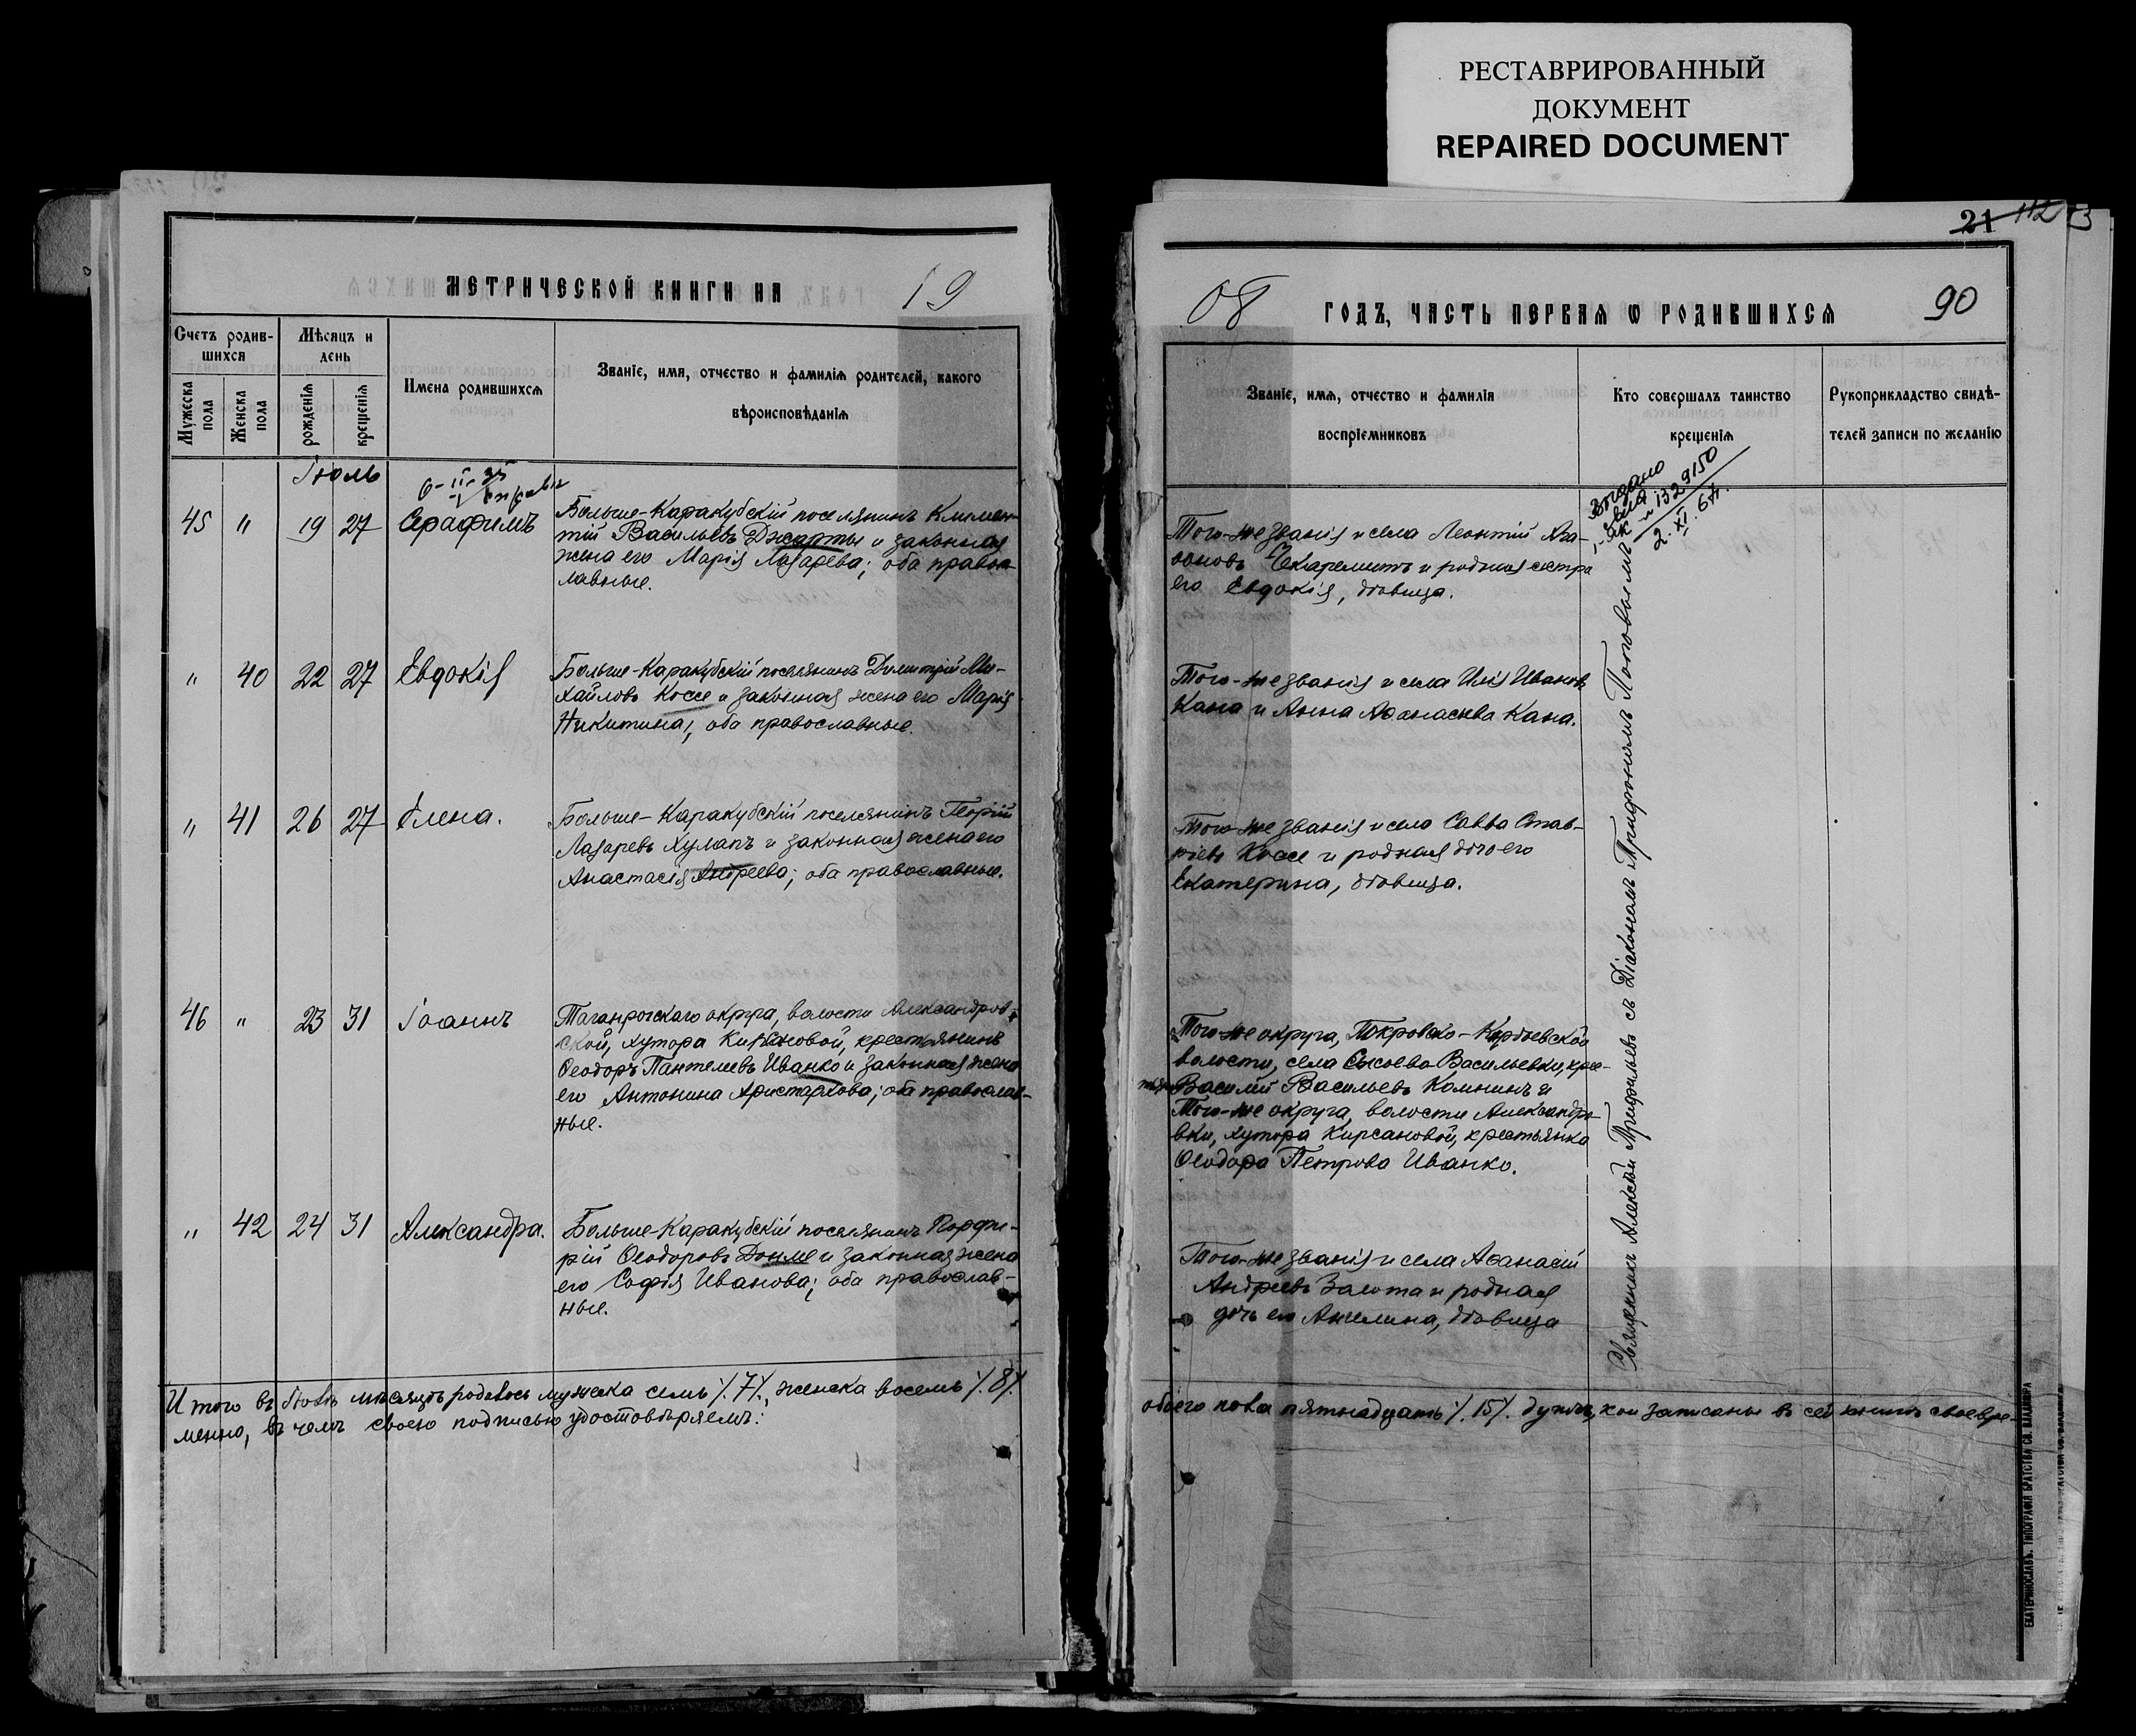 РЕСТАВРИРОВАННЫЙ
ДОКУМЕНТ
REPAIRED DOCUMENT
МЕТРИЧЕСКОЙ КНИГИ НА
19
Счетъ родив-
шихся
Мѣсяцъ и
день
Мужеска
пола
Женска
пола
рожденія
крещенія
Имена родившихся
Званіе, имя, отчество и фамилія родителей, какого
вѣроисповѣданія
Іюль
45 " 19 27 Серафимъ
Больше-Каракубскій поселянинъ Климен-
тій Васильевъ Джарты и законная
жена его Марія Лазарева; оба правос-
лавные.
" 40 22 27 Евдокія
Больше-Каракубскій поселянинъ Димитрій Ми-
хайловъ Коссе и законная жена его Марія
Никитина, оба православные.
" 41 26 27 Елена.
Больше-Каракубскій поселянинъ Георгій
Лазаревъ Хулахъ и законная жена его
Анастасія Андреева; оба православные.
46 " 23 31 Іоаннъ
Таганрогскаго округа, волости Александров-
ской, хутора Кирсановой, крестьянинъ
Ѳеодоръ Пантелеевъ Иванко и законная жена
его Антонина Аристархова; оба православ-
ные.
" 42 24 31 Александра.
Больше-Каракубскій поселянинъ Порфи-
рій Ѳеодоровъ Донме и законная жена
его Софія Иванова; оба православ-
ные.
Итого въ Іюлѣ мѣсяцѣ родилось мужеска семь %7%, женска восемь %8%
менно, въ чемъ своею подписью удостовѣряемъ:
21 112
08
ГОДЪ, ЧАСТЬ ПЕРВАЯ Ѡ РОДИВШИХСЯ
90
Званіе, имя, отчество и фамилія
воспріемниковъ
Кто совершалъ таинство
крещенія
Рукоприкладство свидѣ-
телей записи по желанію
Выдано
1329150
2.XI.64.
Того-же званія и села Леонтій Аѳа-
Чекарамитъ и родная сестра
его Евдокія, дѣвица.
Того-же званія и села Илія Ивановъ
Кана и Анна Аѳанасьева Кана.
Того-же званія и села Савва Став-
ріевъ Коссе и родная дочь его
Екатерина, дѣвица.
Того-же округа, Покровско-Кирѣевской
волости, села Сысоево Васильевки, крес-
Василій Васильевъ Калнинъ и
Того-же округа, волости Александро-
вки, хутора Кирсановой, крестьянка
Ѳеодора Петрова Иванко.
Того-же званія и села Аѳанасій
Андреевъ Залота и родная
дочь его Ангелина, дѣвица
Священникъ Алексѣй Трифильевъ съ Діакономъ Трифономъ Поповымъ
обоего пола пятнадцать %15% душъ, кои записаны въ сей книгѣ своевре-
ЕКАТЕРИНОСЛАВЪ. ТИПОГРАФІЯ БРАТСТВА СВ. ВЛАДИМІРА